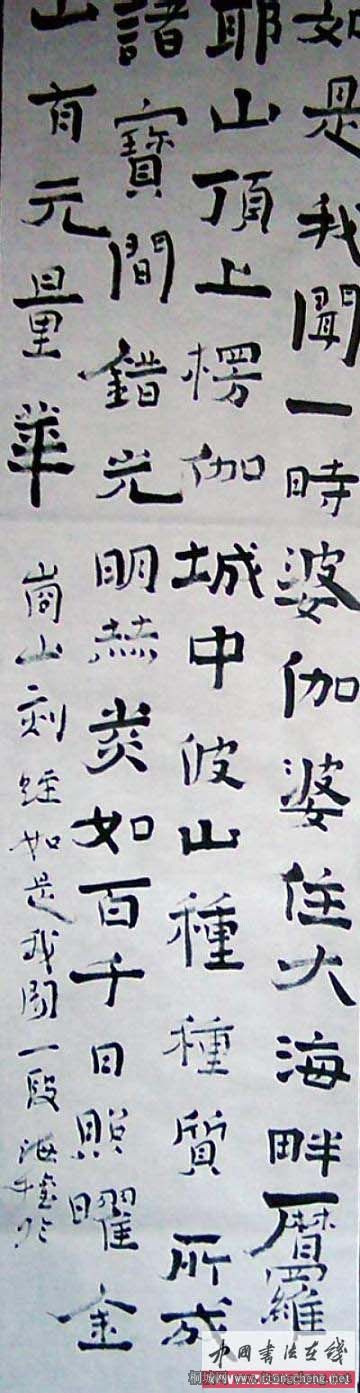 如是我聞一時婆伽婆住大海畔摩羅
耶山頂上楞伽城中彼山種種質所成
諸寶間錯光明赫炎如百千日照曜金
山有元量華
崗山刻經如是我聞一段海
中国书法在线
桐城网